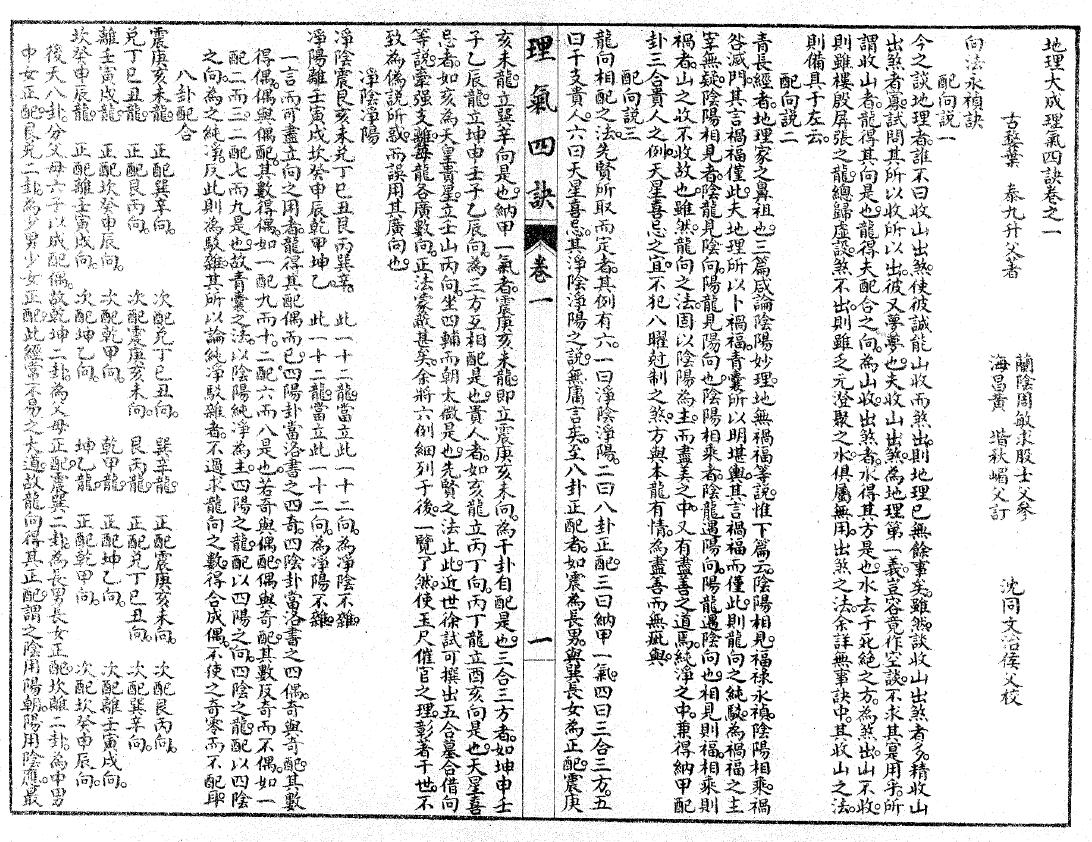 地理大成理氣四訣卷之一
古蓼葉 泰九升父著
蘭陰周敏求殷士父參
海昌黃 堦秋嵋父訂
沈同文治侯父校
向法永禎訣
配向說一
今之談地理者誰不曰收山出煞使彼誠能山收而煞出則地理已無餘事矣雖然談收山出煞者多精收山
出煞者寡試問其所以收所以出彼又夢夢也夫收山出煞為地理第一義豈容竟作空談不求其寔用乎所
謂收山者龍得其向是也龍得夫配合之向為山收出煞者水得其方是也水去于死絕之方為煞出山不收
則雖樓殿屏張之龍總歸虛設煞不出則雖之元澄聚之水俱屬無用出煞之法余詳無事訣中其收山之法
則備具于左云
配向說二
青長經者地理家之鼻祖也三篇咸論陰陽妙理地無禍福等說惟下篇云陰陽相見福祿永禎陰陽相乘禍
咎滅門其言禍福僅此夫地理所以卜禍福青囊所以明堪輿其言禍福而僅此則龍向之純駁為禍福之主
宰無疑陰陽相見者陰龍見陰向陽龍見陽向也陰陽相乘者陰龍遇陽向陽龍遇陰向也相見則福相乘則
禍者山之收不收故也雖然龍向之法固以陰陽為主而盡美之中又有盡善之道焉純淨之中兼得納甲配
卦三合貴人之例天星喜忌之宜不犯八曜尅制之煞方與本龍有情為盡善而無疵與
配向說三
龍向相配之法先賢所取而定者其例有六一曰淨陰淨陽二曰八卦正配三曰納甲一氣四曰三合三方五
曰干支貴人六曰天星喜忌其淨陰淨陽之說無庸言矣至八卦正配者如震為長男與巽長女為正配震庚
理氣四訣 卷一 一
亥未龍立巽辛向是也納甲一氣者震庚亥未龍即立震庚亥未向為干卦自配是也三合三方者如坤申壬
子乙辰龍立坤申壬子乙辰向為三方互相配是也貴人者如亥龍立丙丁向丙丁龍立酉亥向是也天星喜
忌者如亥為天皇貴星立壬山丙向坐四輔而朝太微是也先賢之法止此近世徐試可撰出五合墓合借向
等說牽强支離每龍各廣數向正法蒙蔽甚矣余將六例細列于後一覽了然使玉尺催官之理彰著于世不
致為偽說所惑而誤用其廣向也
淨陰淨陽
淨陰震艮亥未兌丁巳丑艮丙巽辛 此一十二龍當立此一十二向為淨陰不雜
淨陽離壬寅戌坎癸申辰乾甲坤乙 此一十二龍當立此一十二向為淨陽不雜
一言而可盡立向之用者龍得其配偶而已四陽卦當洛書之四奇四陰卦當洛書之四偶奇與奇配其數
得偶偶與偶配其數得偶如一配九而十二配六而八是也若奇與偶配偶與奇配其數反奇而不偶如一
配二而三二配七而九是也故青囊之法以陰陽純淨為主四陽之龍配以四陽之向四陰之龍配以四陰
之向為之純淨反此則為駁雜其所以論純淨駁雜者不過求龍向之數得合成偶不使之奇零而不配耳
八卦配合
震庚亥未龍 正配巽辛向 次配兌丁巳丑向 巽辛龍 正配震庚亥未向 次配艮丙向
兌丁巳丑龍 正配艮丙向 次配震庚亥未向 艮丙龍 正配兌丁巳丑向 次配巽辛向
離壬寅戌龍 正配坎癸申辰向 次配乾甲向 乾甲龍 正配坤乙向 次配離壬寅戌向
坎癸申辰龍 正配離壬寅戌向 次配坤乙向 坤乙龍 正配乾甲向 次配坎癸申辰向
後天八卦分父母六子以成配偶故乾坤二卦為父母正配震巽二卦為長男長女正配坎離二卦為中男
中女正配艮兌二卦為少男少女正配此經常不易之大道故龍向得其正配謂之陰用陽朝陽用陰應最